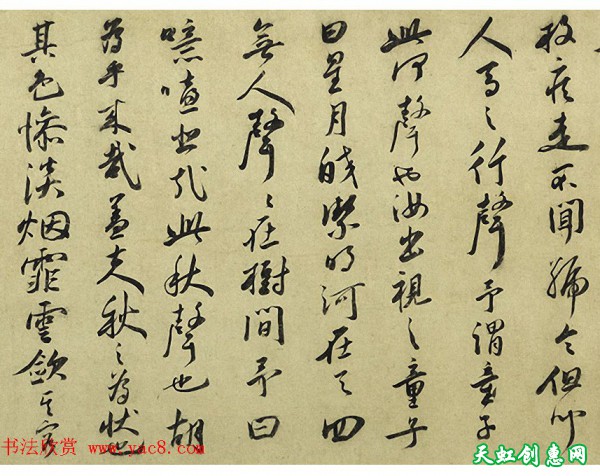 枚疾走不聞號令但聞
人馬之行聲予謂童子
此何聲也汝出視之童子
曰星月皎潔明河在天四
無人聲〻在樹間予曰
噫嘻悲哉此秋聲也胡
為乎來哉蓋夫秋之為狀也
其色慘淡烟霏雲斂其容
书法欣赏 www.yac8.com
天虹创惠网